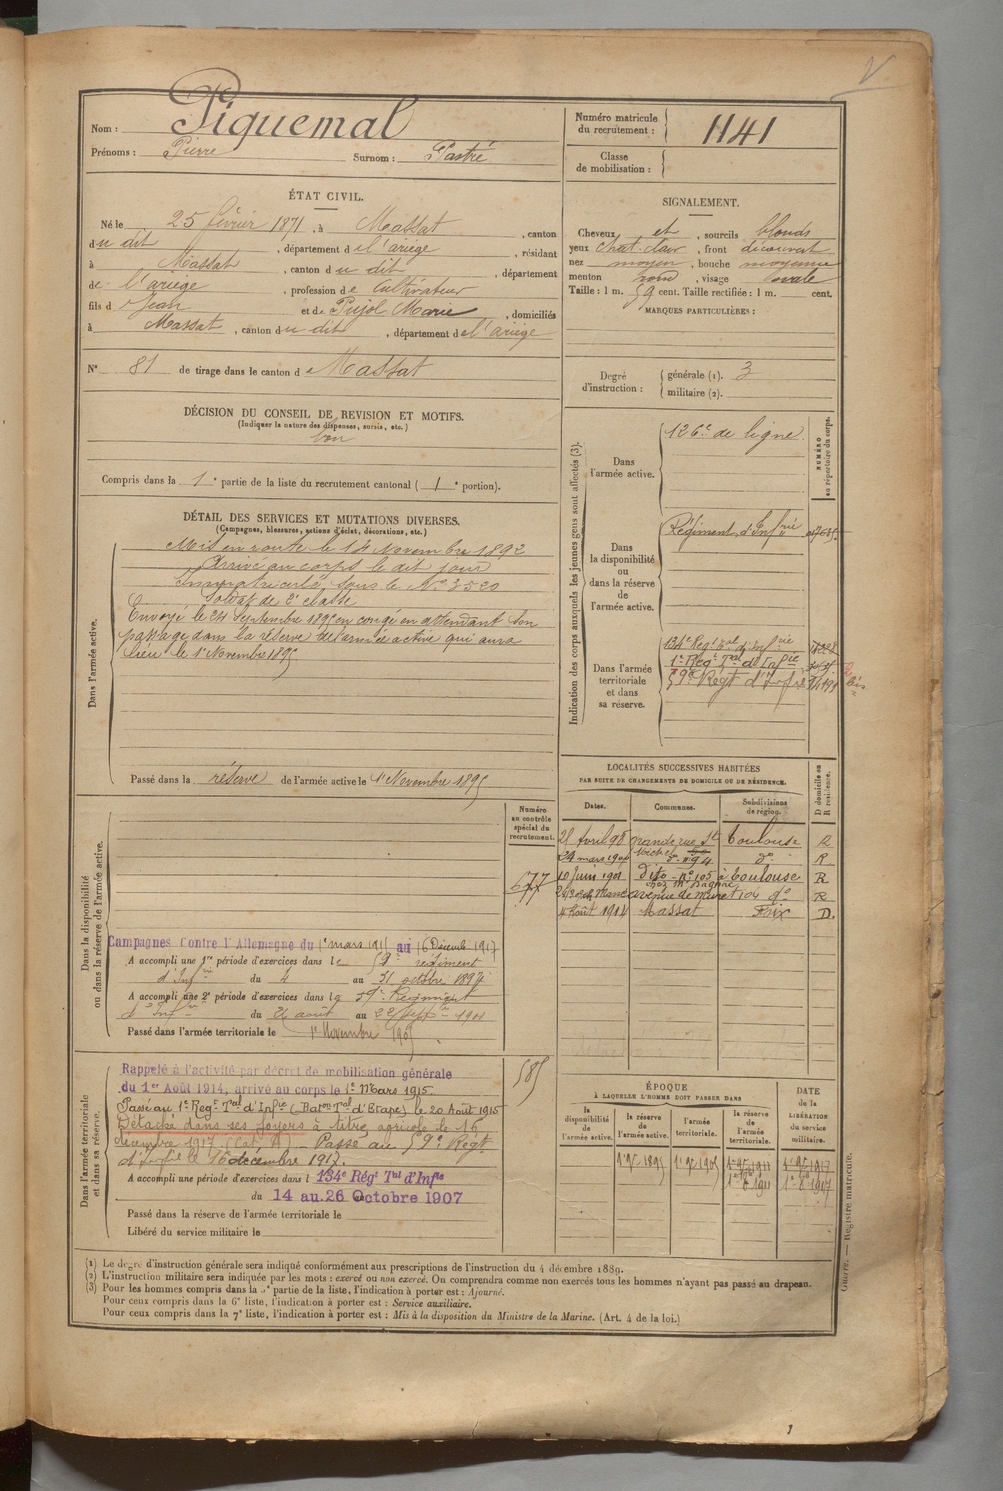 Nom : Piquemal
Prénoms : Pierre Surnom : Pastré
Numéro matricule du recrutement : 1141
Classe de mobilisation :
ÉTAT CIVIL.
Né le 25 février 1871, à Massat, canton
du dit, département de l'ariège, résidant
à Massat, canton du dit, département
de l'ariège, profession de cultivateur
fils de Jean et de Pujol Marie, domiciliés
à Massat, canton du dit, département de l'ariège
N° 81 de tirage dans le canton de Massat
SIGNALEMENT.
Cheveux et, sourcils blonds
yeux chat. clair, front découvert
nez moyen, bouche moyenne
menton rond, visage ovale
Taille : 1 m. 59 cent. Taille rectifiée : 1 m. cent.
MARQUES PARTICULIÈRES :
Degré d'instruction : générale (1). 3
militaire (2).
DÉCISION DU CONSEIL DE REVISION ET MOTIFS.
(Indiquer la nature des dispenses, sursis, etc.)
bon
Compris dans la 1e partie de la liste du recrutement cantonal ( 1e portion).
DÉTAIL DES SERVICES ET MUTATIONS DIVERSES.
(Campagnes, blessures, actions d'éclat, décorations, etc.)
Dans l'armée active.
Mis en route le 14 Novembre 1892
Arrivé au corps le dit jour
Immatriculé sous le N° 3520
Soldat de 2e classe
Envoyé le 24 Septembre 1895 en congé en attendant son
passage dans la réserve de l'armée active qui aura
lieu le 1er Novembre 1895
Passé dans la réserve de l'armée active le 1er Novembre 1895
Indication des corps auxquels les jeunes gens sont affectés (3).
NUMÉRO au répertoire du corps.
Dans l'armée active.
126e de ligne.
Dans la disponibilité ou dans la réserve de l'armée active.
Régiment d'Infrie
Dans l'armée territoriale et dans sa réserve.
134e Régt Tal d'Infrie
1er Régt Tal d'Infie
59e Régt d'Infie
LOCALITÉS SUCCESSIVES HABITÉES
PAR SUITE DE CHANGEMENTS DE DOMICILE OU DE RÉSIDENCE.
Dates. Communes. Subdivisions de région. D domicile ou R résidence.
21 Avril 98 Grande rue St Michel Toulouse R
24 mars 1900 do n° 94 do R
10 Juin 1901 Dito - n° 105 à Toulouse R
avenue de Muret do R
4 Août 1914 Massat Foix D.
Numéro au contrôle spécial du recrutement.
677
Dans la disponibilité ou dans la réserve de l'armée active.
Campagnes Contre l'Allemagne du 1er mars 1915 au 16 Décemb 1917
A accompli une 1re période d'exercices dans le 59e régiment
d'Infrie du 4 au 31 octobre 1897
A accompli une 2e période d'exercices dans le 59e Régiment
d'Infrie du 26 août au 22 Septbre 1901
Passé dans l'armée territoriale le 1er Novembre 1905
585
Dans l'armée territoriale et dans sa réserve.
Rappelé à l'activité par décret de mobilisation générale
du 1er Août 1914, arrivé au corps le 1er Mars 1915.
Passé au 1er Régt Tal d'Infie (Baton Tal d'Etape) le 20 Août 1915
Détaché dans ses foyers à titre agricole le 16
décembre 1917 (Cat. A) Passé au 59e Régt
d'Infie le 16 décembre 1917.
A accompli une période d'exercices dans l 134e Régt Tal d'Infie
du 14 au 26 Octobre 1907
Passé dans la réserve de l'armée territoriale le
Libéré du service militaire le
ÉPOQUE
À LAQUELLE L'HOMME DOIT PASSER DANS
la disponibilité de l'armée active.
la réserve de l'armée active.
l'armée territoriale.
la réserve de l'armée territoriale.
DATE de la LIBÉRATION du service militaire.
1er 9bre 1895 1er 9bre 1905 1er 9bre 1911 1er 9bre 1917
1er 8bre 1911 1er 8bre 1917
(1) Le degré d'instruction générale sera indiqué conformément aux prescriptions de l'instruction du 4 décembre 1889.
(2) L'instruction militaire sera indiquée par les mots : exercé ou non exercé. On comprendra comme non exercés tous les hommes n'ayant pas passé au drapeau.
(3) Pour les hommes compris dans la 5e partie de la liste, l'indication à porter est : Ajourné.
Pour ceux compris dans la 6e liste, l'indication à porter est : Service auxiliaire.
Pour ceux compris dans la 7e liste, l'indication à porter est : Mis à la disposition du Ministre de la Marine. (Art. 4 de la loi.)
Guerre. — Registre matricule.